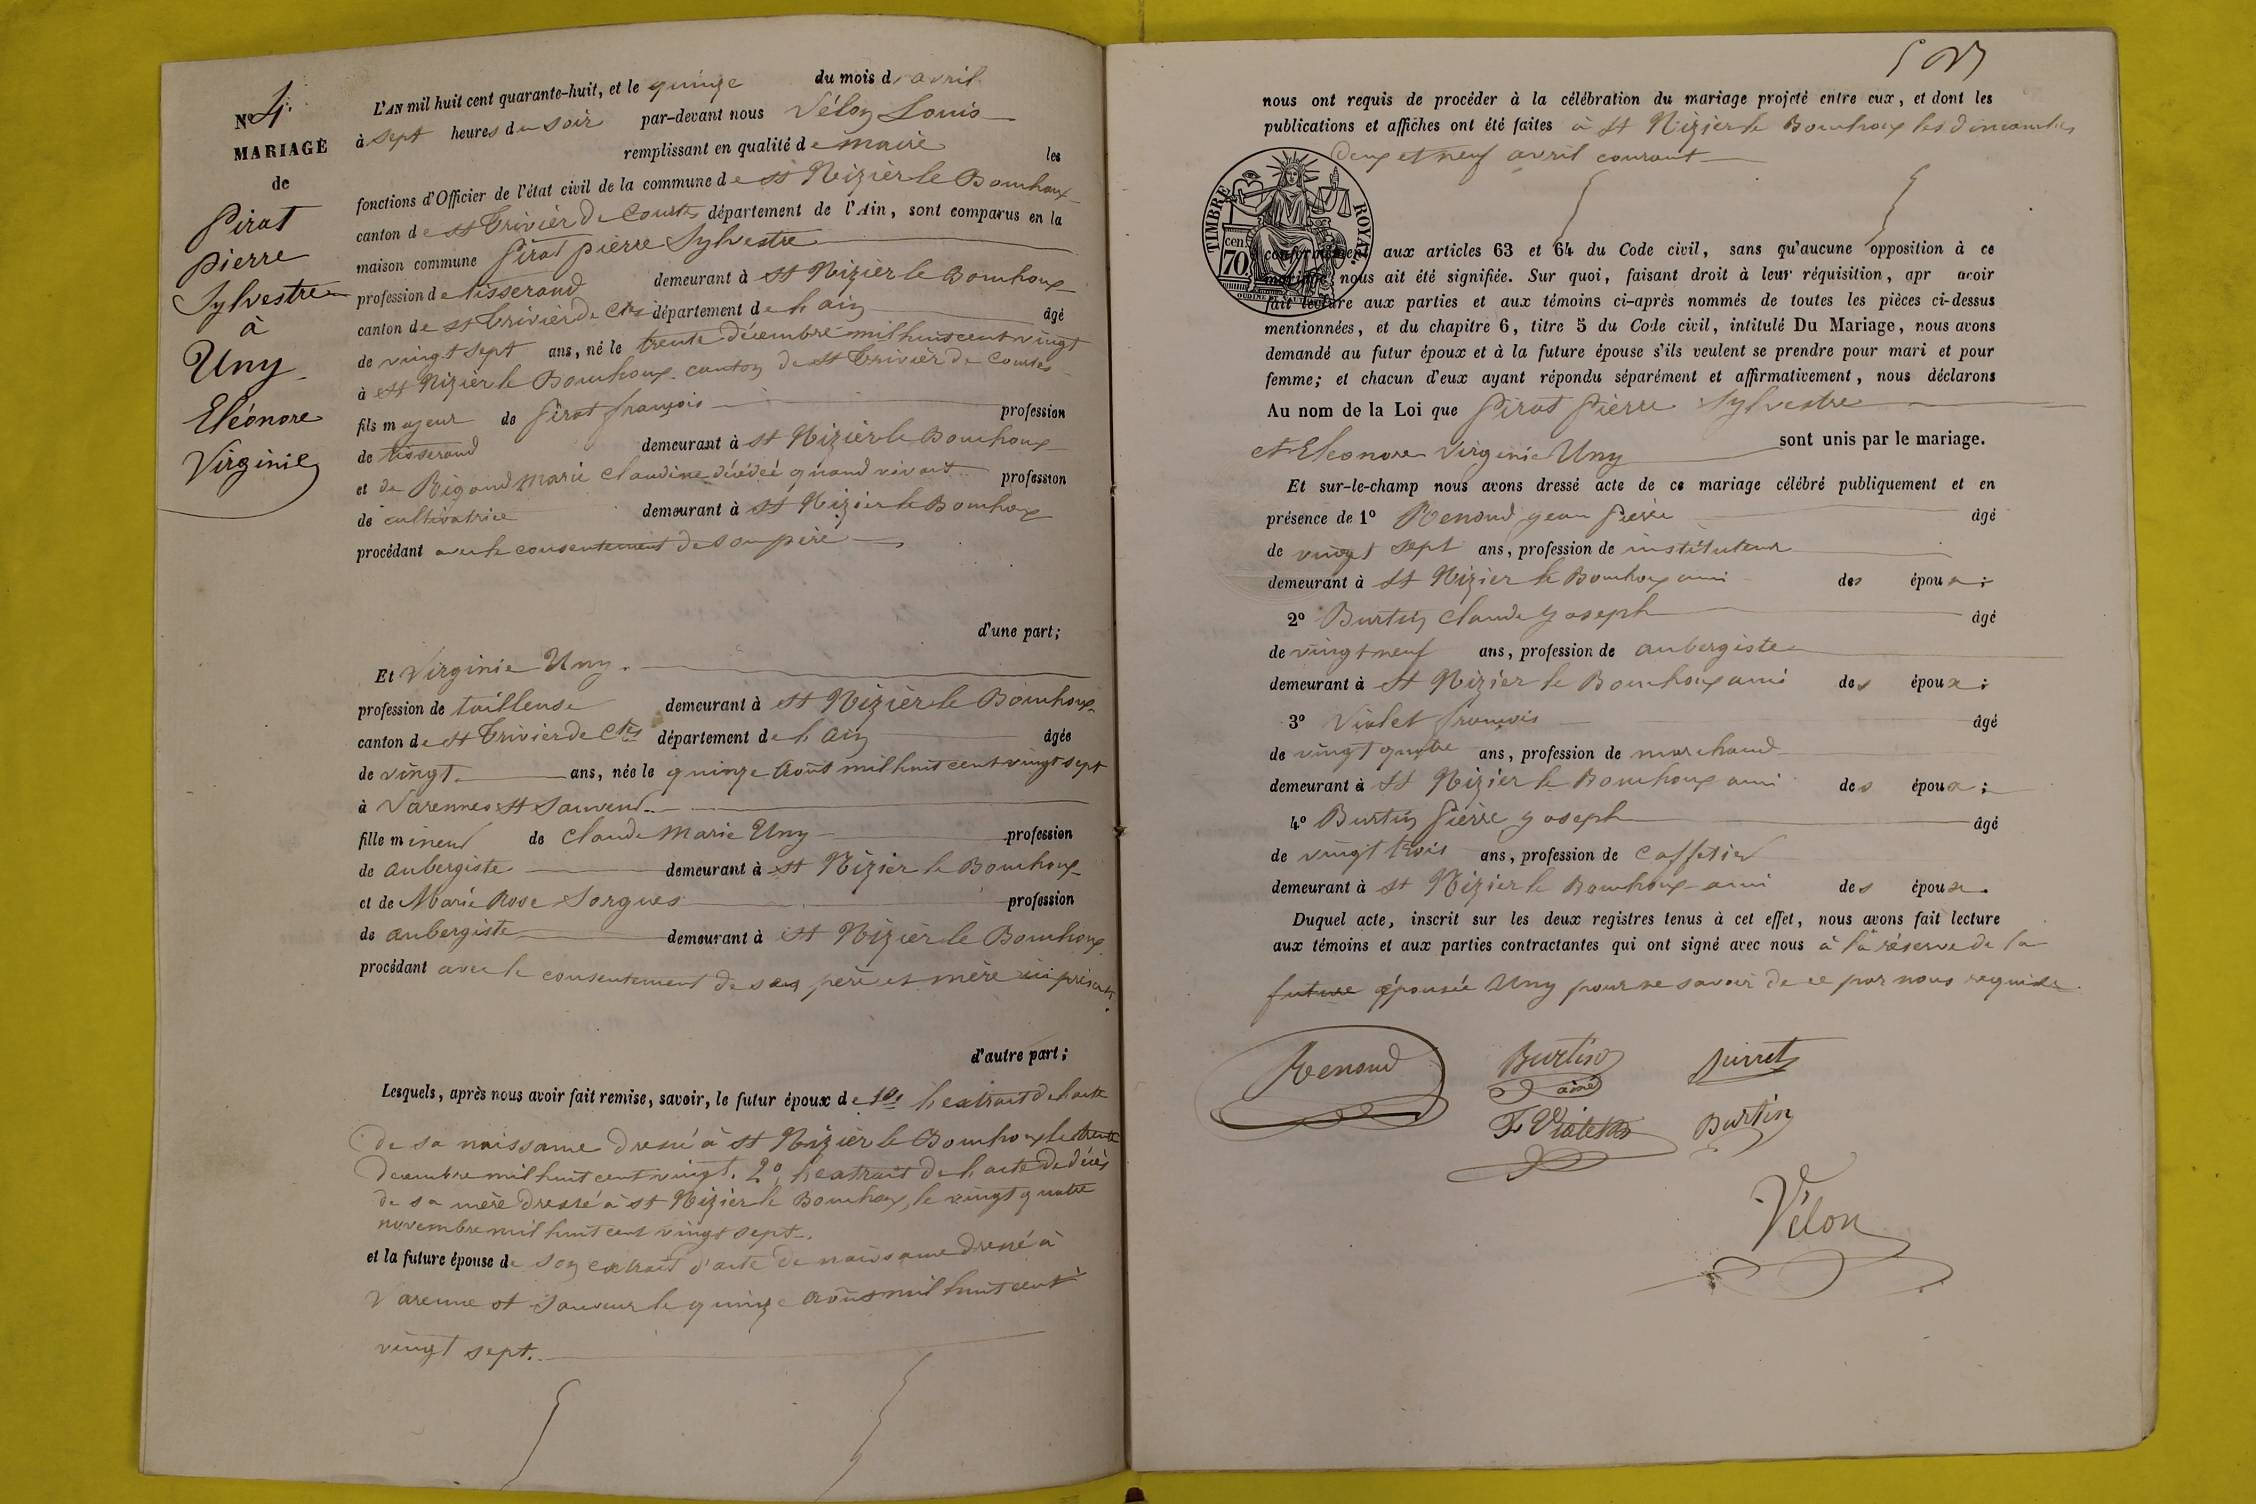 No 4.
MARIAGE
de
Pirat
Pierre
Sylvestre
à
Uny
Eléonore
Virginie
L'AN mil huit cent quarante-huit, et le quinze du mois d'avril
à sept heures du soir par-devant nous Vélon Louis
remplissant en qualité de maire les
fonctions d'Officier de l'état civil de la commune de St Nizier le Bouchoux
canton de St Trivier de Courtes département de l'Ain, sont comparus en la
maison commune Pirat pierre Sylvestre
profession de tisserand demeurant à St Nizier le Bouchoux
canton de St Trivier de Ctes département de l'ain âgé
de vingt sept ans, né le trente décembre mil huit cent vingt
à St Nizier le Bouchoux canton de St Trivier de Courtes
fils majeur de Pirat françois profession
de tisserand demeurant à St Nizier le Bouchoux
et de Rigaud Marie Claudine décédée quand vivait profession
de cultivatrice demeurant à St Nizier le Bouchoux
procédant avec le consentement de son père
d'une part;
Et Virginie Uny.
profession de tailleuse demeurant à St Nizier le Bouchoux
canton de St Trivier de Ctes département de l'Ain âgée
de vingt ans, née le quinze Août mil huit cent vingt sept
à Varennes St Sauveur
fille mineur de Claude Marie Uny profession
de aubergiste demeurant à St Nizier le Bouchoux
et de Marie Rose Sorgues profession
de aubergiste demeurant à St Nizier le Bouchoux
procédant avec le consentement de ses père et mère ici présents.
d'autre part;
Lesquels, après nous avoir fait remise, savoir, le futur époux de 1o l'extrait de l'acte
de sa naissance dressé à St Nizier le Bouchoux le trente
decembre mil huit cent vingt. 2o, l'extrait de l'acte de décès
de sa mère dressé à St Nizier le Bouchoux, le vingt quatre
novembre mil huit cent vingt sept.
et la future épouse de son extrait d'acte de naissance dressé à
Varenne St Sauveur le quinze Août mil huit cent
vingt sept.
nous ont requis de procéder à la célébration du mariage projeté entre eux, et dont les
publications et affiches ont été faites à St Nizier le Bouchoux les dimanches
deux et neuf avril courant
TIMBRE ROYAL
cen
70
conformément aux articles 63 et 64 du Code civil, sans qu'aucune opposition à ce
mariage nous ait été signifiée. Sur quoi, faisant droit à leur réquisition, apr avoir
fait lecture aux parties et aux témoins ci-après nommés de toutes les pièces ci-dessus
mentionnées, et du chapitre 6, titre 5 du Code civil, intitulé Du Mariage, nous avons
demandé au futur époux et à la future épouse s'ils veulent se prendre pour mari et pour
femme; et chacun d'eux ayant répondu séparément et affirmativement, nous déclarons
Au nom de la Loi que Pirat Pierre Sylvestre
et Eleonore Virginie Uny sont unis par le mariage.
Et sur-le-champ nous avons dressé acte de ce mariage célébré publiquement et en
présence de 1o Renoud Jean Pierre âgé
de vingt sept ans, profession de instituteur
demeurant à St Nizier le Bouchoux ami des époux;
2o Burtin Claude Joseph âgé
de vingt neuf ans, profession de aubergiste
demeurant à St Nizier le Bouchoux ami des époux;
3o Violet françois âgé
de vingt quatre ans, profession de marchand
demeurant à St Nizier le Bouchoux ami des époux;
4o Burtin Pierre Joseph âgé
de vingt trois ans, profession de Caffetier
demeurant à St Nizier le Bouchoux ami des époux.
Duquel acte, inscrit sur les deux registres tenus à cet effet, nous avons fait lecture
aux témoins et aux parties contractantes qui ont signé avec nous à la réserve de la
future épousée Uny pour ne savoir de ce par nous requise.
Renoud Burtin
ainé
F. Violet Burtin
Vélon